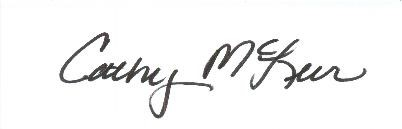 Cathy McKeer